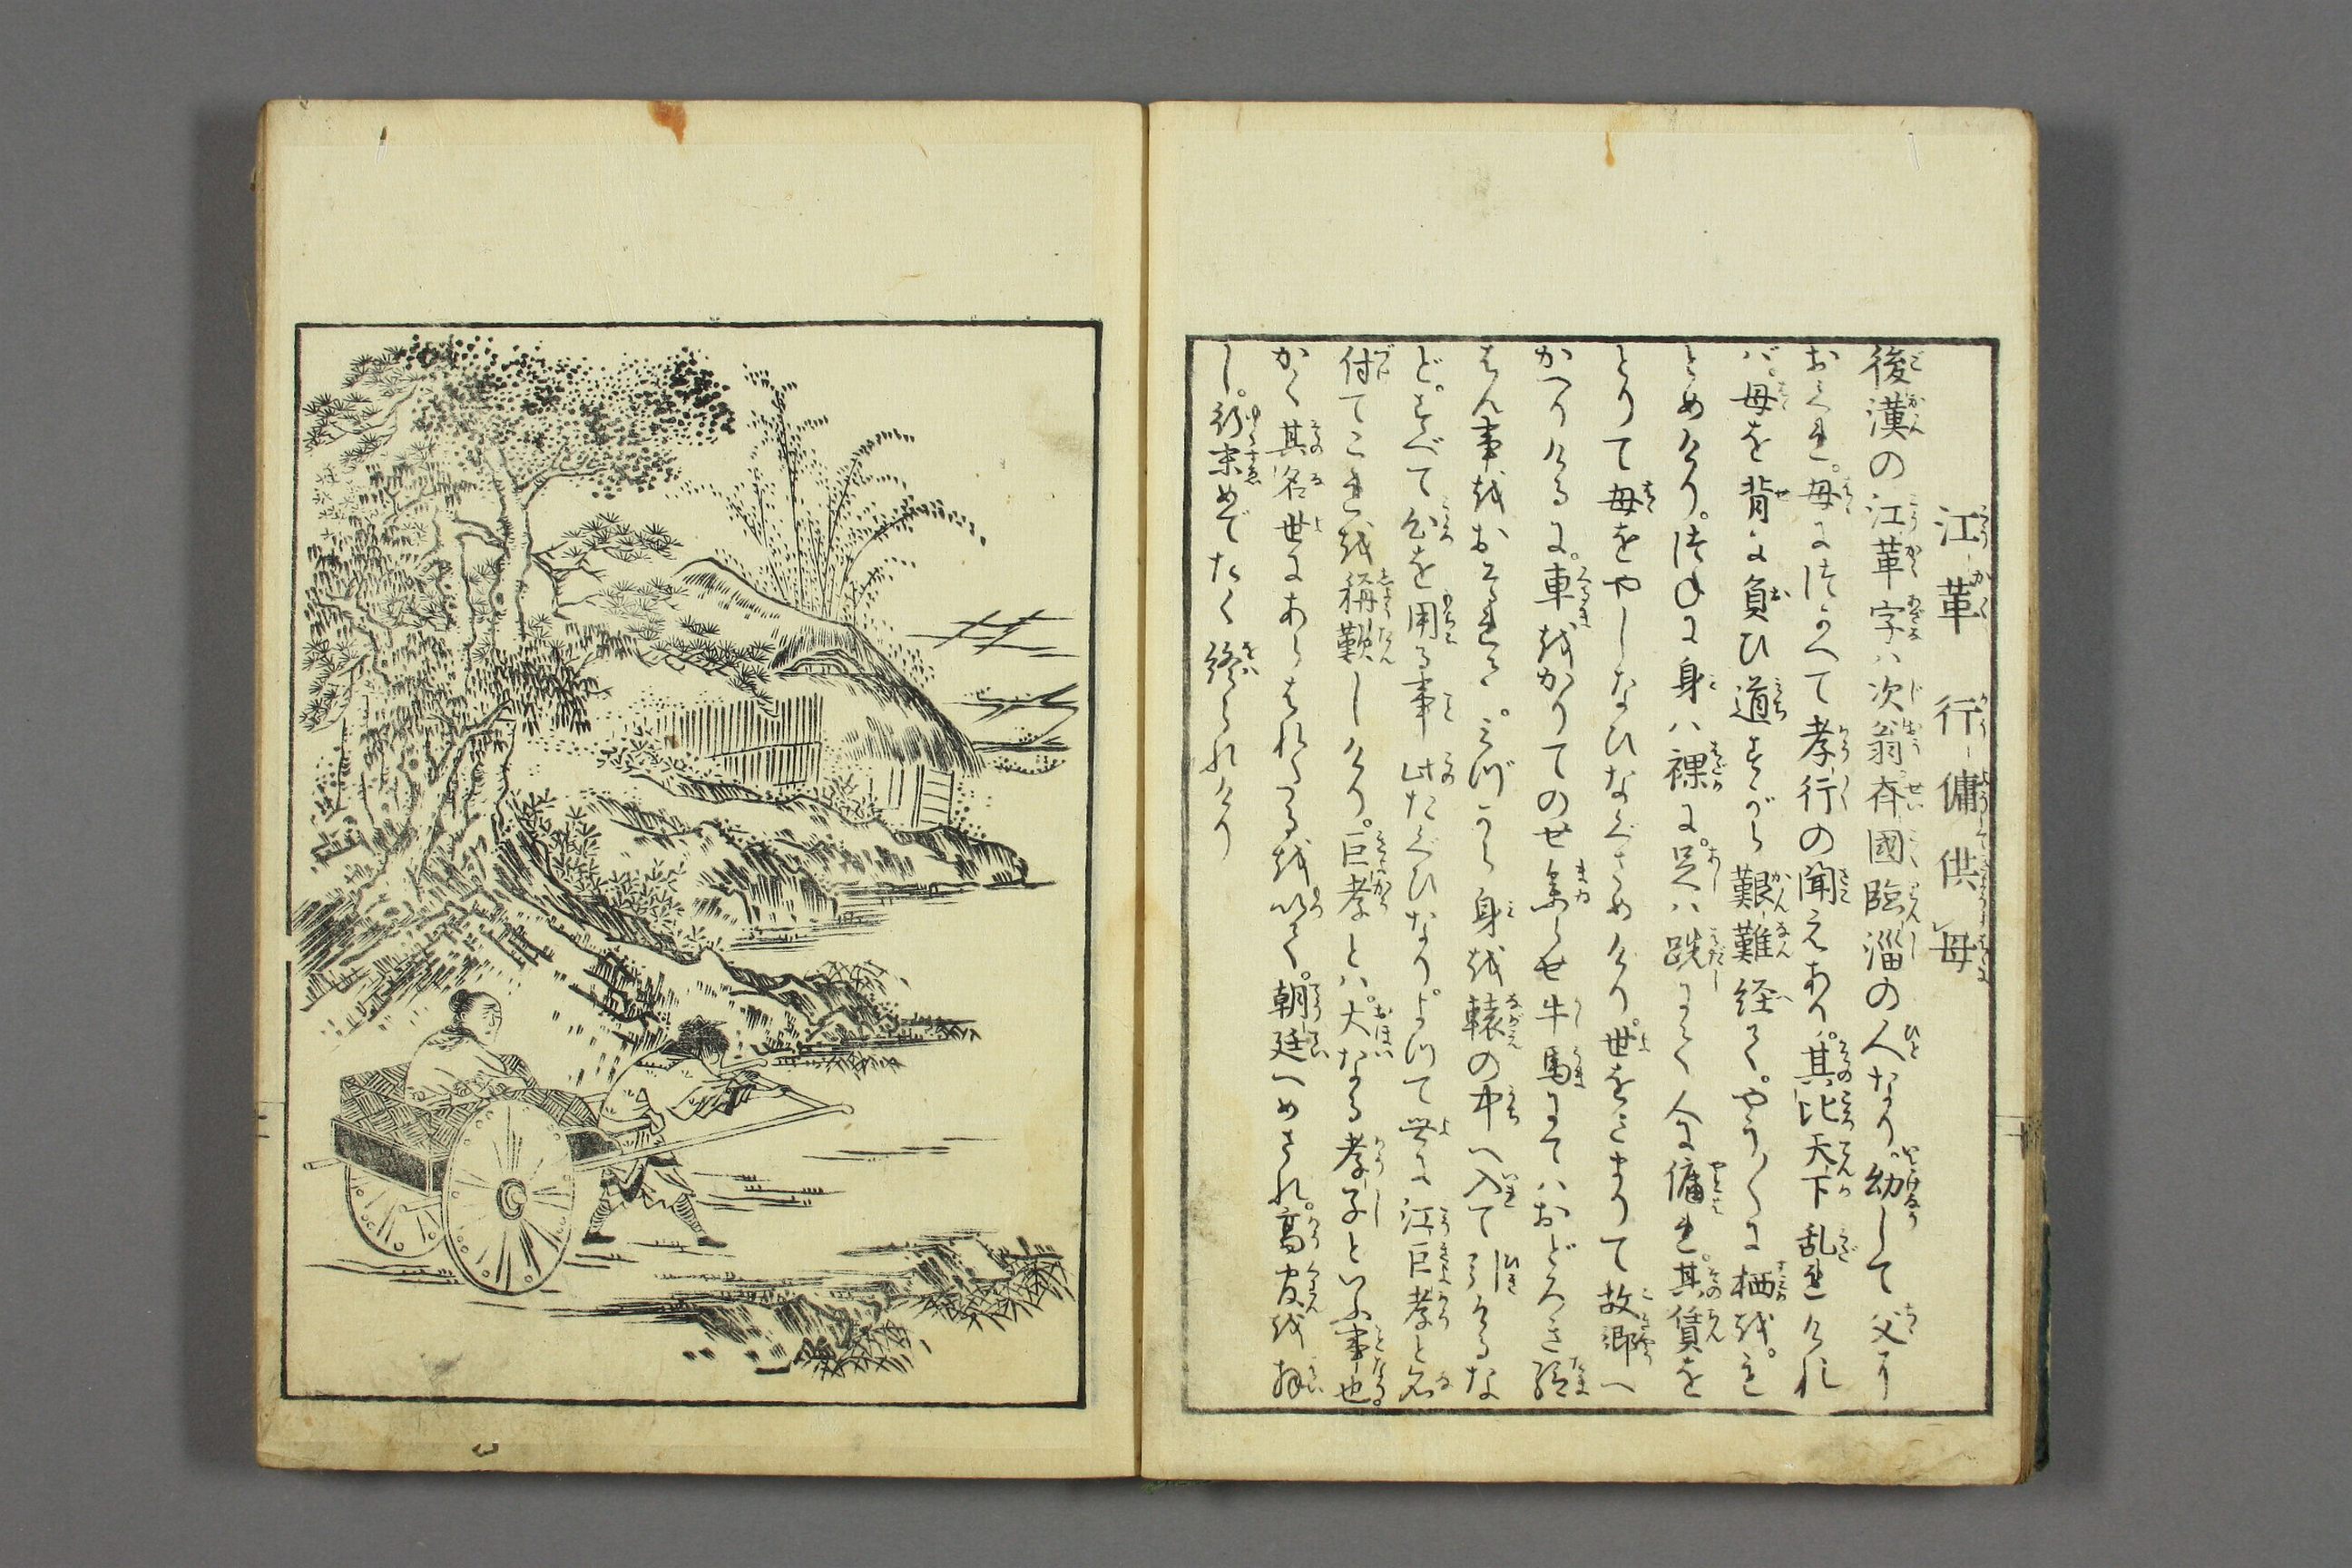 江革 行傭供母
後漢の江革字ハ次翁斉國臨淄の人なり。幼して父に
おくれ。母につかへて孝行の聞えあり。其比天下乱れけれ
バ。母を背に負ひ道すがら艱難経て。やう〳〵に栖を。も
とめけり。つねに身ハ裸に。足ハ跣にて人に傭れ。其賃を
とりて母をやしなひなぐさめけり。世をさまりて故郷へ
かへりけるに。車をかりてのせ参らせ牛馬にてハおどろき給
はん事をおそれて。みづから身を轅の中へ入て引けるな
ど。すべて心を用る事此たぐひなり。よつて世に江巨孝と名
付てこれを稱歎しけり。巨孝とハ。大なる孝子といふ事也。
かく其名世にあらはれたるを以て。朝廷へめされ。高官を拝
し。行末めでたく終られけり